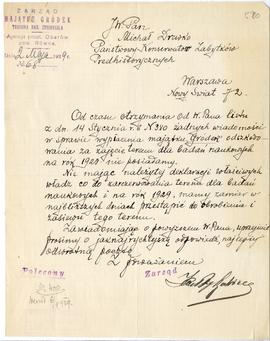 580
ZARZĄD
MAJĄTKU GRÓDEK
J.W. Pan
Michał Drewko
Państwowy Konserwator Zabytków
Przedhistorycznych
2 Maja 1929 r.
Warszawa
Nowy Świat 72.
Od czasu otrzymania od W. Pana listu
z dn. 14 stycznia r. b. № 310 żadnych wiadomości
w sprawie wypłacenia majątku Gródek odszko-
dowania za zajęcie terenu dla badań naukowych
na rok 1929 nie posiadamy.
Nie mając należytej deklaracji
władz co do zarezerwowania terenu dla badań
naukowych i na rok 1929 mamy zamiar w
najbliższych dniach przystąpić do obrobienia i
zasiewu tego terenu.
Zawiadamiając o powyższem W. Pana, uprzejmie
prosimy o jaknajrychlejszą odpowiedź, najlepiej
odwrotną pocztą.
Z poważaniem
Polecony
Zarząd